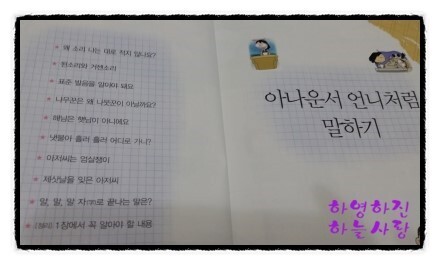 왜 소리 나는 대로 적지 않나요?
된소리와 거센소리
표준 발음을 알아야 돼요
나무꾼은 왜 나뭇꾼이 아닐까요?
해님은 햇님이 아니에요
냇물아 흘러 흘러 어디로 가니?
아저씨는 엄살쟁이
제삿날을 잊은 아저씨
알, 랄, 말 자로 끝나는 말은?
1장에서 꼭 알아야 할 내용
아나운서 언니처럼
말하기
하영하진
하늘사랑